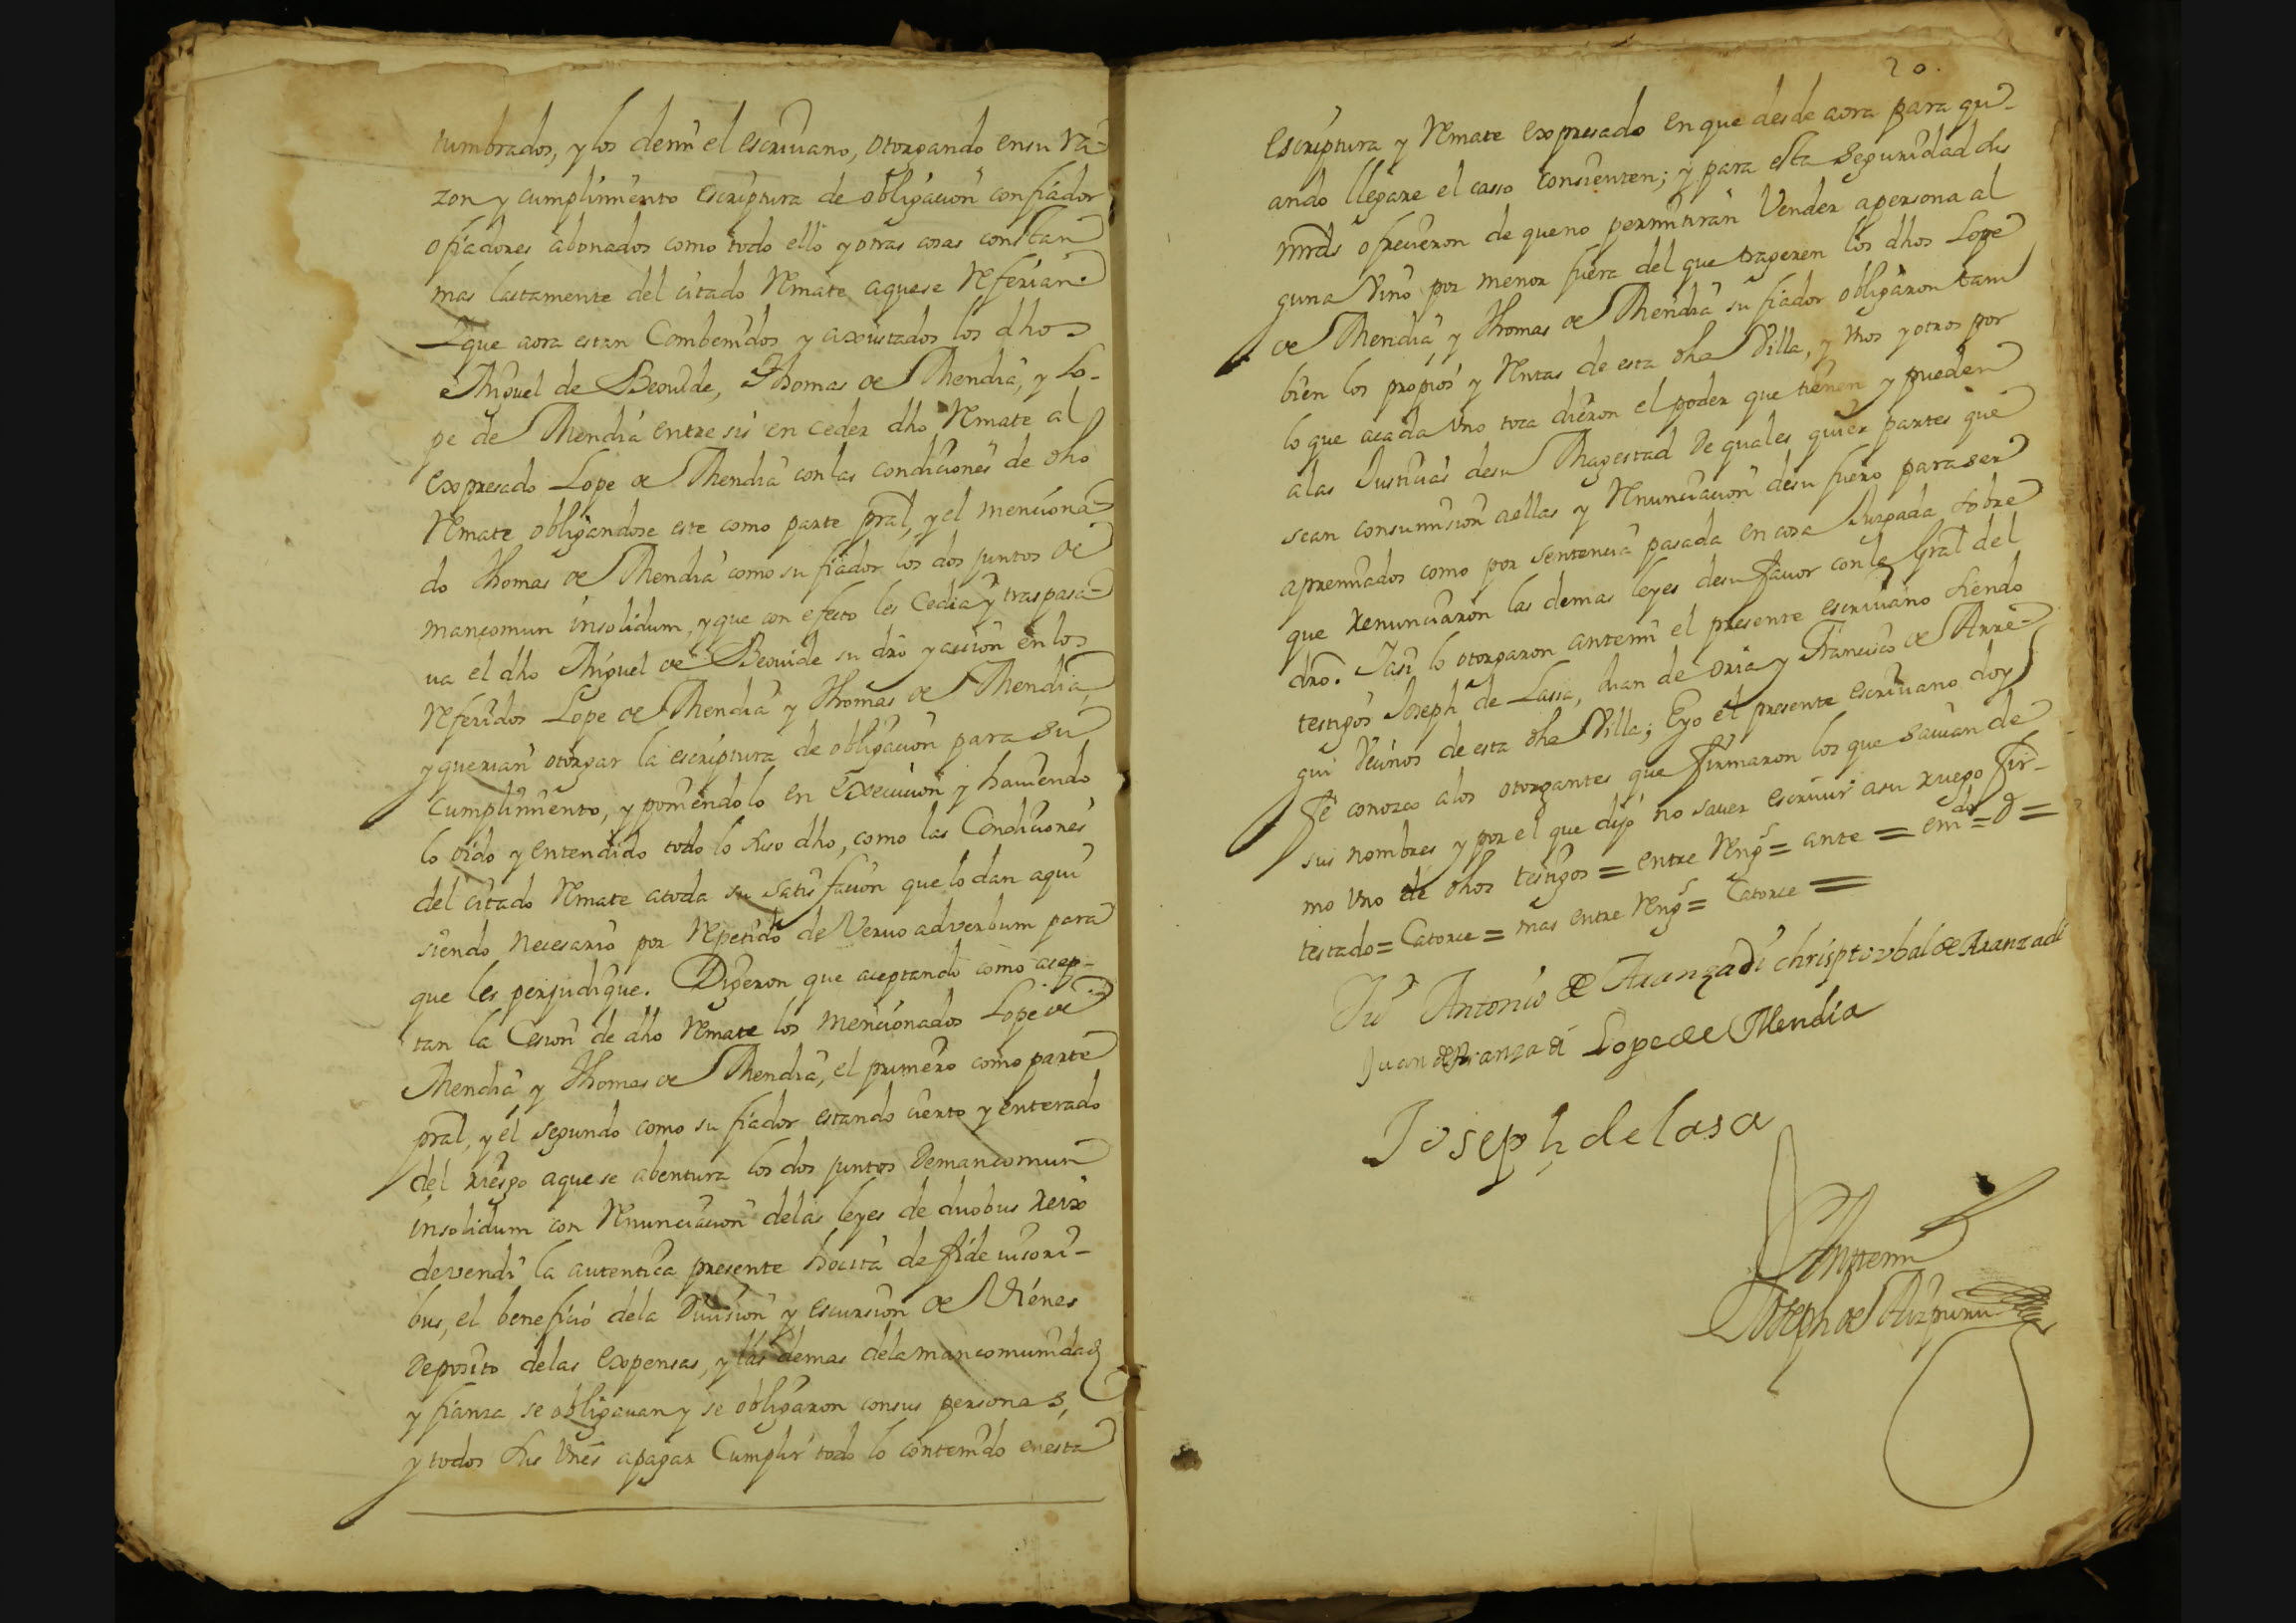 tumbrados, y los demi el escriuano, otorgando en su ra-
zon y cumplimiento escriptura de obligacion con fiador
o fiadores abonados como todo ello y otras cosas constan
mas lastamente del citado Remate aquese Referian.
Y que aora estan Combenidos y axustados los dhos
Miguel de Beouide, Thomas de Mendia, y Lo-
pe de Mendia entre sis en ceder dho Remate al
expresado Lope de Mendia con las condiciones de dho
Remate obligandose este como parte pral, y el menciona-
do Thomas de Mendia como su fiador los dos juntos de
mancomun insolidum, y que con efecto les Cedia y traspasa-
ua el dho Miguel de Beouide su dro y accion en los
Referidos Lope de Mendia y Thomas de Mendia,
y querian otorgar la escriptura de obligacion para su
cumplimiento, y poniendolo en Execucion y hauiendo
lo oido y entendido todo lo suso dho, como las Condiciones
del citado Remate atoda su satisfacion que lo dan aqui
siendo necesario por Repetido de Veruo adverbum para
que les perjudique. Digeron que aceptando como acep-
tan la Cesion de dho Remate los mencionados Lope de
Mendia y Thomas de Mendia, el primero como parte
pral, y el segundo como su fiador estando cierto y enterado
del riesgo aque se abentura los dos juntos de mancomun
insolidum con Renunciacion delas leyes de duobus reix
devendi la autentica presente hocita de fide iusori-
bus, el beneficio dela Diuision y escursion de Vienes
deposito delas expensas, y las demas dela mancomunidad
y fianza se obligauan y se obligaron consus personas,
y todos sus Vnes apagar Cumplir todo lo contenido enesta
20.
escriptura y Remate expresado en que desde aora para qu-
ando llegare el casso consienten; y para esta seguridad dhs
mrds ofrecieron de queno permitiran Vender apersona al
guna Vino por menor fuera del que trageren los dhos Lope
de Mendia y Thomas de Mendia su fiador obligaron tam
bien los propios y Rentas de esta dha Villa, y Vnos y otros por
lo que acada Vno toca dieron el poder que tienen y pueden
alas Justicias desu Magestad de quales quier partes que
sean consumision aellas y Renunciacion desu fuero para ser
apremiados como por sentencia pasada en cosa Juzgada sobre
que renunciaron las demas leyes desu fauor conla Gral del
dro. Yasi lo otorgaron antemi el presente escriuano siendo
testigos Joseph de Lassa, Juan de Oria y Francisco de Arre-
gui Vecinos de esta dha Villa; Eyo el presente escriuano doy
fe conozco alos otorgantes que firmaron los que sauian de
sus nombres y por el que dijo no sauer escriuir asu ruego fir-
mo Vno de dhos testigos = entre Reng.s = ante = em.do = d =
testado = Catorce = mas entre Reng.s = Catorce =
Antonio de Aranzadi christoubal de Aranzadi
Juan de Aranzadi Lope de Mendia
Joseph de lasa
Anttemi
Joseph de Aizpuru